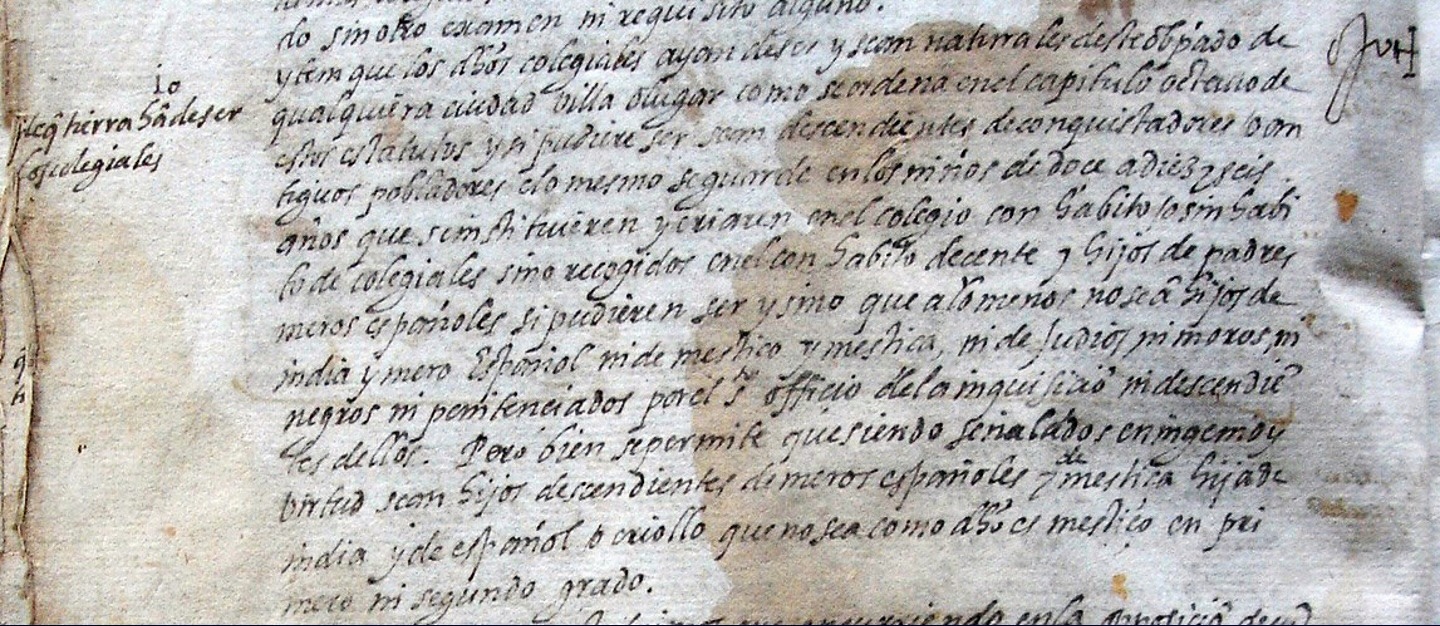 do sin otro examen ni requisito alguno.
ytem que los dhõs colegiales ayan de ser y sean naturales deste obpãdo de
qualquiera ciudad villa olugar como se ordena en el capitulo octauo de
estos estatutos y si pudiere ser sean descendientes de conquistadores o an
tiguos pobladores e lo mesmo se guarde en los niños de doce a diez y seis
años que se instituieren y criaren en el colegio con habito o sin habi
to de colegiales sino recogidos en el con habito decente y hijos de padres
meros españoles si pudieren ser y sino que a lo menos no seã hijos de
india y mero Español ni de mestico y mestica, ni de Judios ni moros ni
negros ni penitenciados por el Sto officio de la inquisiciõ ni descendiẽ
tes dellos. Pero bien se permite que siendo señalados en ingenio y
virtud sean hijos descendientes de meros españoles y de mestiça hija de
india y de español o criollo que no sea como dhõ es mestiço en pri
mero ni segundo grado.
en la opposiciõ
10
de q̃ tierra hã de ser
los colegiales